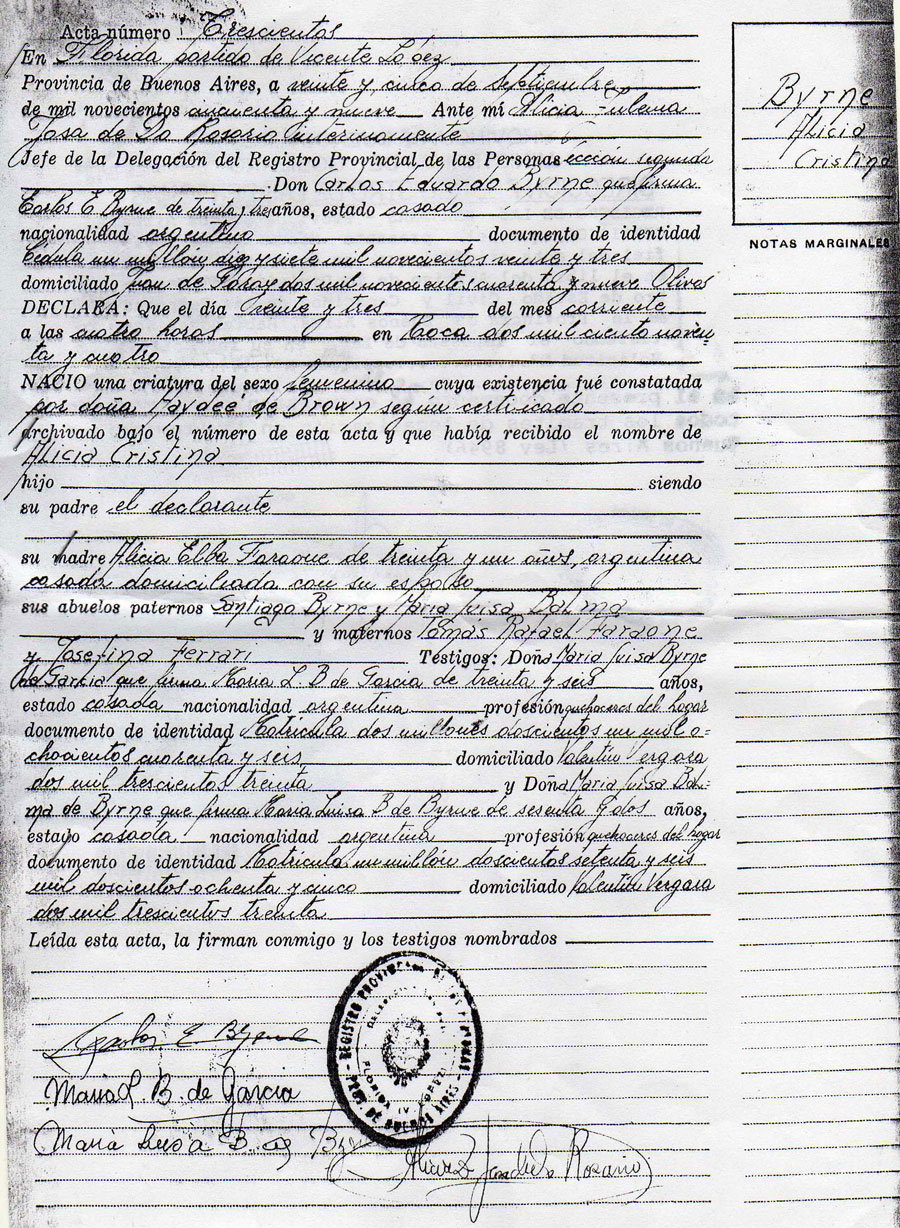 Acta número Trescientos
En Florida partido de Vicente López
Provincia de Buenos Aires, a veinte y cinco de septiembre
de mil novecientos cincuenta y nueve Ante mí Alicia
Josa de La Rosario interinamente
Jefe de la Delegación del Registro Provincial de las Personas sección segunda
Don Carlos Eduardo Byrne que firma
Carlos E Byrne de treinta y tres años, estado casado
nacionalidad argentino documento de identidad
Cédula un millón diez y siete mil novecientos veinte y tres
domiciliado Juan de Garay dos mil novecientos cuarenta y nueve Olivos
DECLARA: Que el día veinte y tres del mes corriente
a las cuatro horas en Roca dos mil ciento noven-
ta y cuatro
NACIO una criatura del sexo femenino cuya existencia fué constatada
por doña Haydeé de Brown según certificado
archivado bajo el número de esta acta y que había recibido el nombre de
Alicia Cristina
hijo siendo
su padre el declarante
su madre Alicia Elba Faraone de treinta y un años, argentina
casada domiciliada con su esposo
sus abuelos paternos Santiago Byrne y María Luisa Balma
y maternos Tomás Rafael Faraone
y Josefina Ferrari Testigos: Doña María Luisa Byrne
de García que firma María L. B de García de treinta y seis años,
estado casada nacionalidad argentina profesión quehaceres del hogar
documento de identidad Matrícula dos millones doscientos un mil o-
chocientos cuarenta y seis domiciliado Valentín Vergara
dos mil trescientos treinta y Doña María Luisa Bal-
ma de Byrne que firma María Luisa B de Byrne de sesenta y dos años,
estado casada nacionalidad argentina profesión quehaceres del hogar
documento de identidad Matrícula un millón doscientos setenta y seis
mil doscientos ochenta y cinco domiciliado Valentín Vergara
dos mil trescientos treinta
Leída esta acta, la firman conmigo y los testigos nombrados
Byrne
Alicia
Cristina
NOTAS MARGINALES
REGISTRO PROVINCIAL DE LAS PERSONAS
PCIA. DE BUENOS AIRES
FLORIDA (V. LOPEZ)
Carlos E Byrne
María L. B. de García
María Luisa B. de Byrne
de Rosario